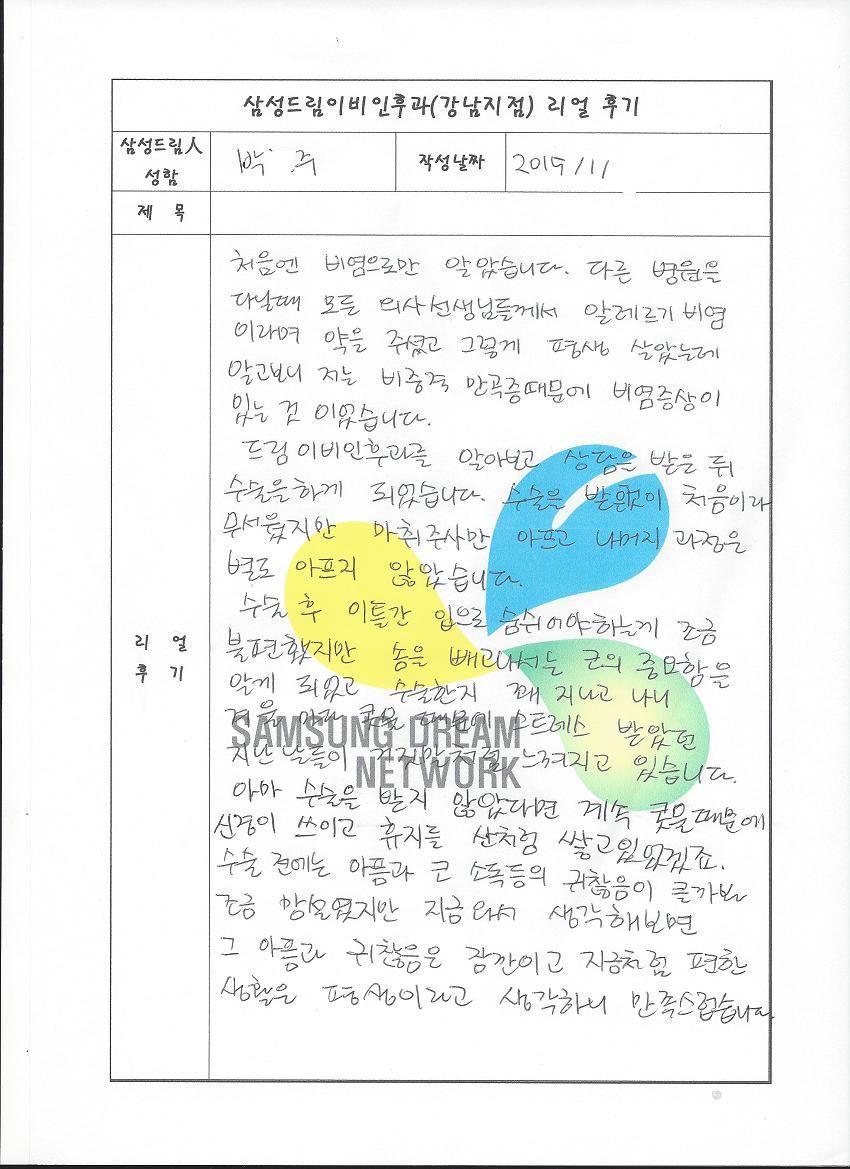 삼성드림이비인후과(강남지점) 리얼 후기
삼성드림人
성함
박 주
작성날짜
2015/11
제 목
처음엔 비염으로만 알았습니다. 다른 병원을
다닐때 모든 의사선생님들께서 알레르기 비염
이라며 약을 주셨고 그렇게 평생 살았는데
알고보니 저는 비중격 만곡증때문에 비염증상이
있는 것 이었습니다.
드림이비인후과를 알아보고 상담을 받은 뒤
수술을하게 되었습니다. 수술을 받은것이 처음이라
무서웠지만 마취주사만 아프고 나머지 과정은
별로 아프지 않았습니다.
수술 후 이틀간 입으로 숨쉬어야하는게 조금
불편했지만 솜을 빼고나서는 코의 중요함을
알게 되었고 수술한지 꽤 지나고 나니
콧물 때문에 스트레스 받았던
지난날들이 거짓말처럼 느껴지고 있습니다.
아마 수술을 받지 않았다면 계속 콧물때문에
신경이 쓰이고 휴지를 산처럼 쌓고있었겠죠.
수술 전에는 아픔과 코 소독등의 귀찮음이 클까봐
조금 망설였지만 지금와서 생각해보면
그 아픔과 귀찮음은 잠깐이고 지금처럼 편한
생활은 평생이라고 생각하니 만족스럽습니다.
리 얼
후 기
SAMSUNG DREAM
NETWORK